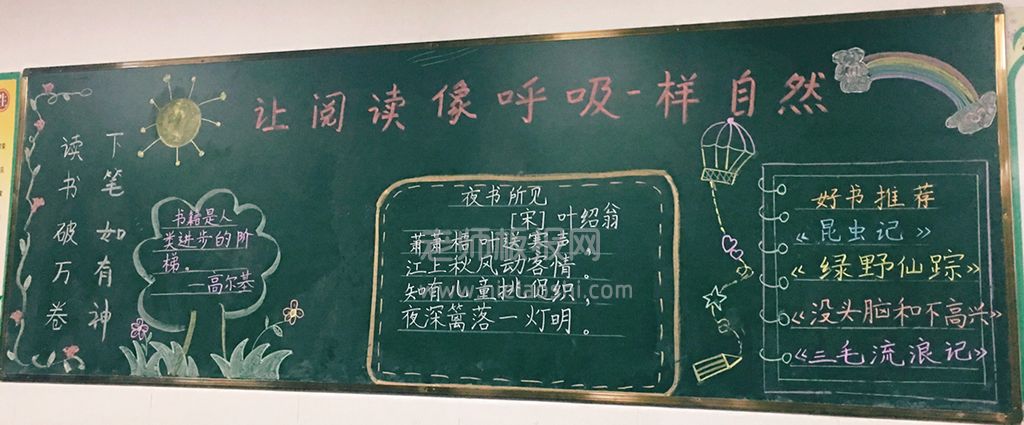 让阅读像呼吸一样自然
读书破万卷
下笔如有神
书籍是人
类进步的阶
梯。
—高尔基
夜书所见
[宋]叶绍翁
萧萧梧叶送寒声，
江上秋风动客情。
知有儿童挑促织，
夜深篱落一灯明。
好书推荐
《昆虫记》
《绿野仙踪》
《没头脑和不高兴》
《三毛流浪记》
老师板报网